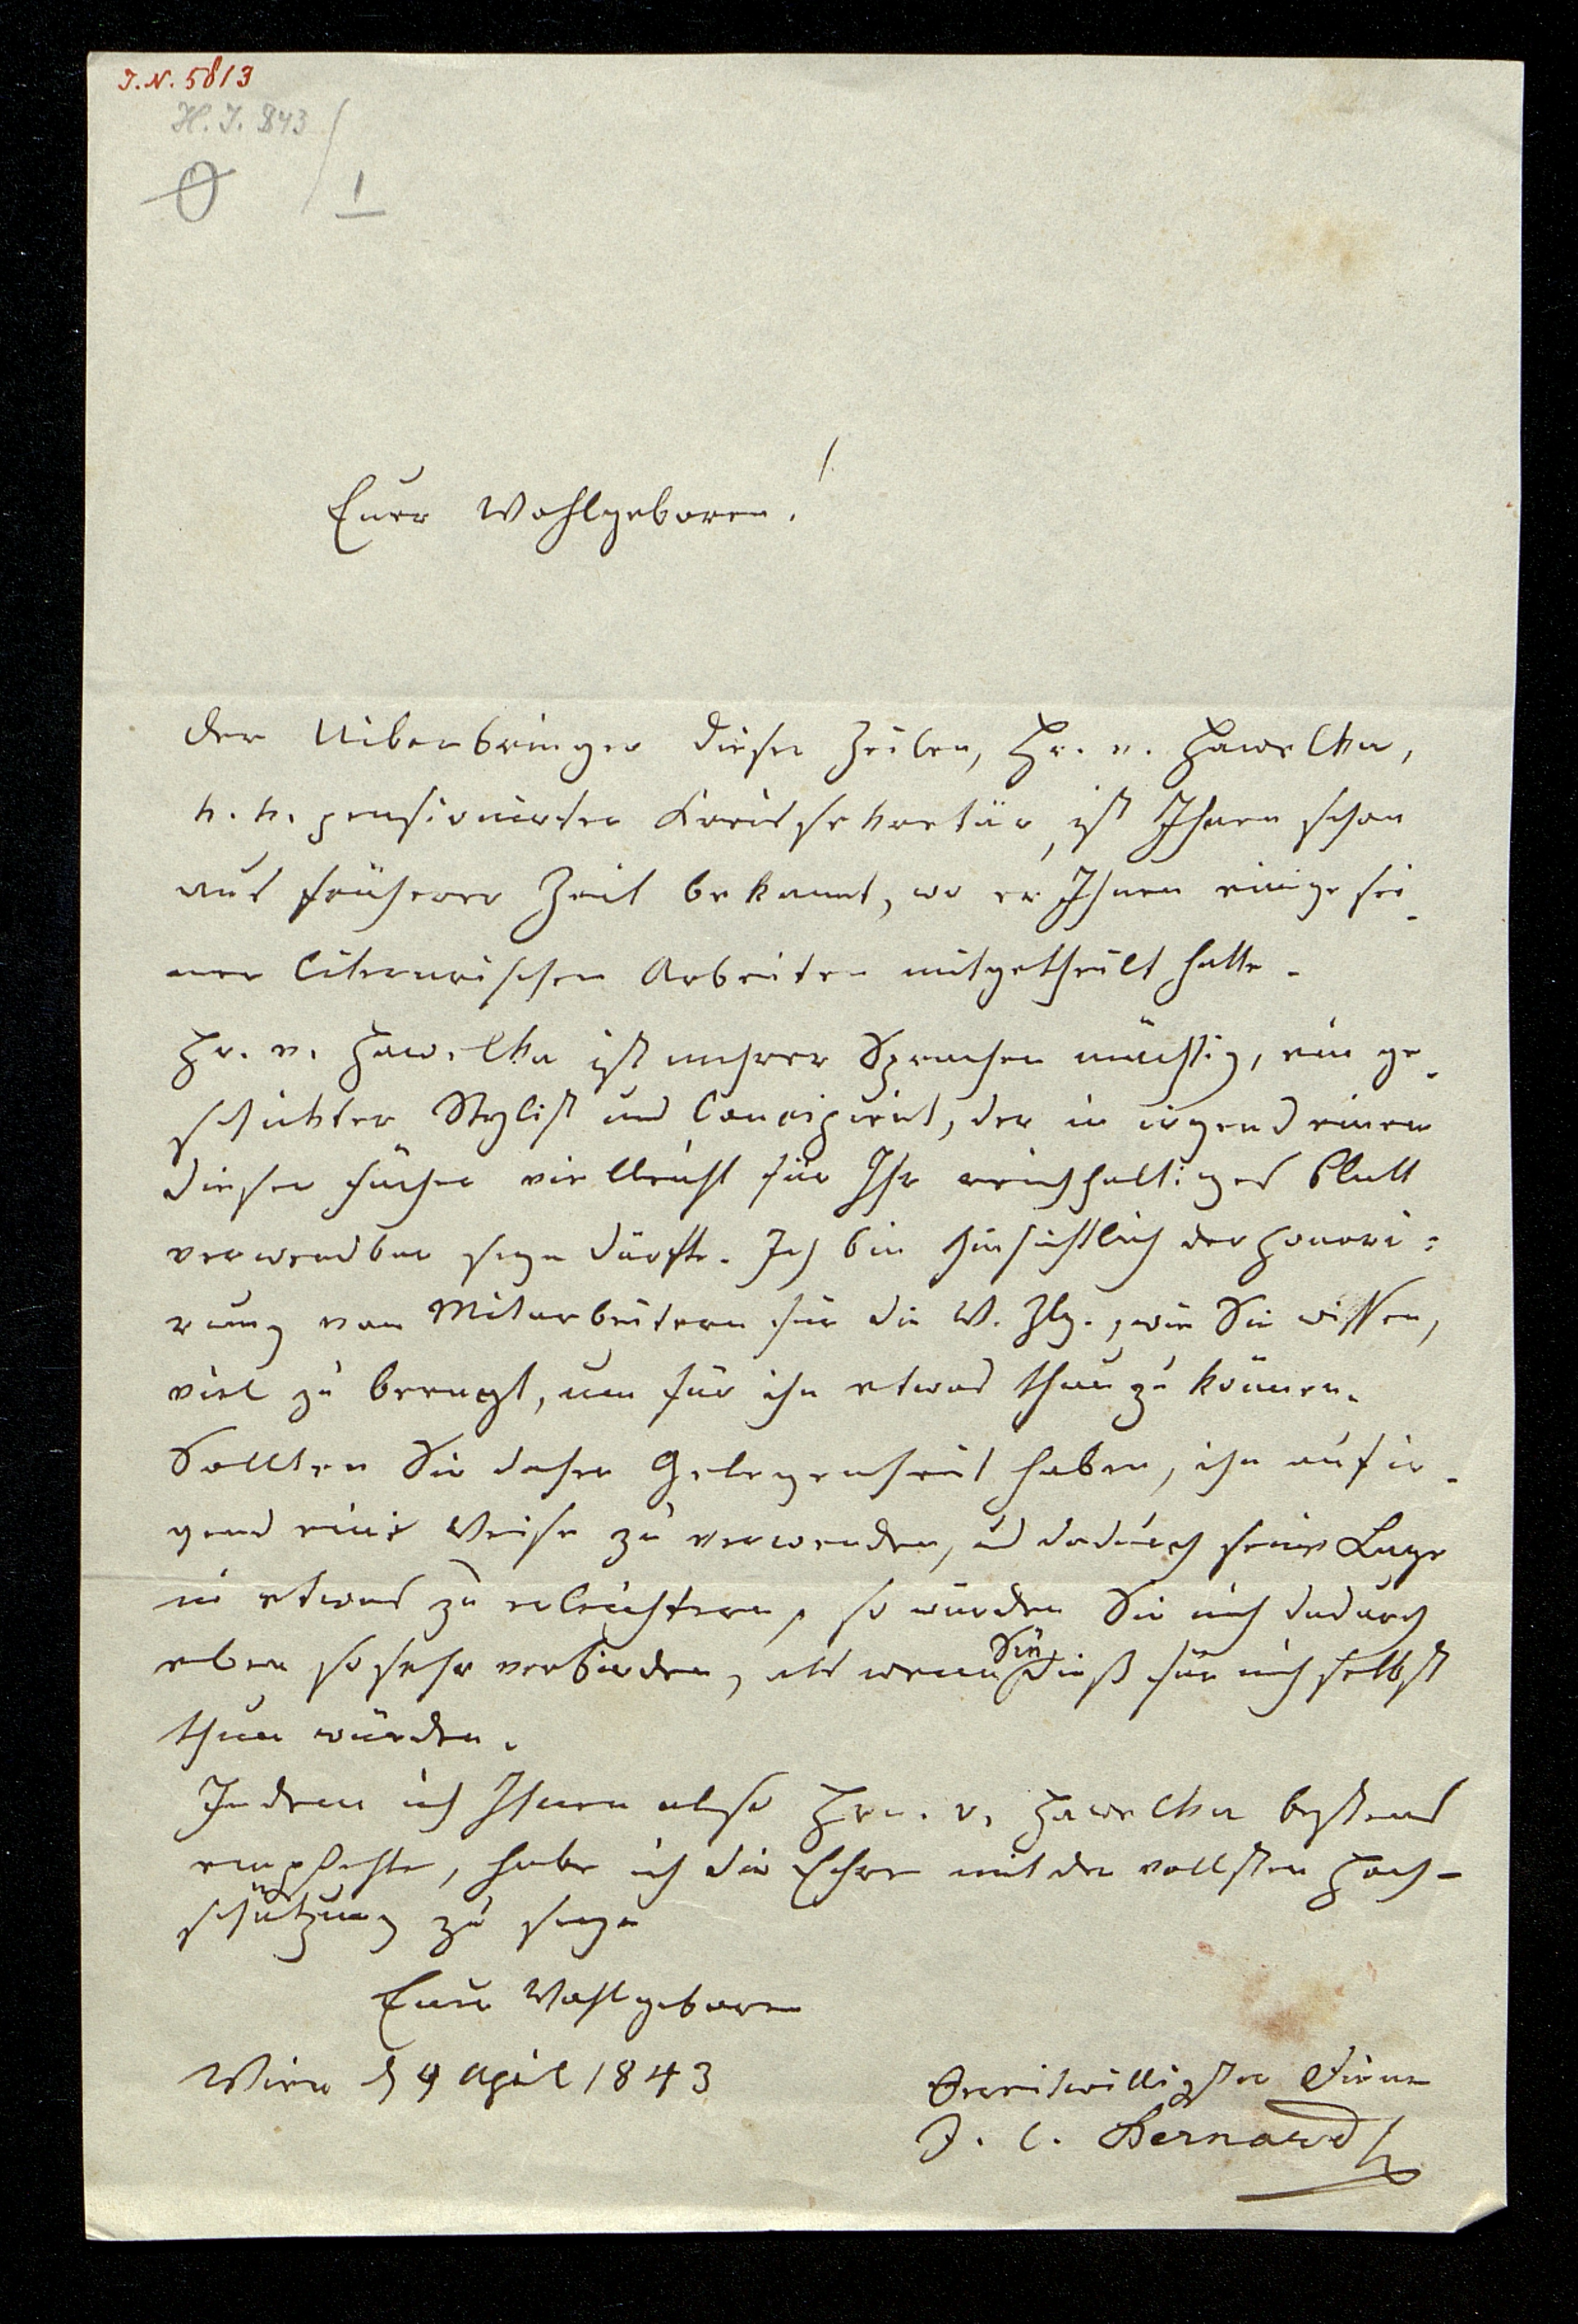 J.N. 5813
H.J. 843 /
0 / 1
Euer Wohlgeboren!
Der Uiberbringer dieser Zeilen, Hr. v. Hawelka,
k. k. pensionirter Kreissekretär, ist Ihnen schon
aus früherer Zeit bekannt, wo er Ihnen einige sei-
ner literarischen Arbeiten mitgetheilt hatte.
Hr. v. Hawelka ist mehrer Sprachen mächtig, ein ge-
schickter Stylist und Concipient, der in irgend einem
dieser Fächer vielleicht für Ihr reichhaltiges Blatt
verwendbar seyn dürfte. Ich bin hinsichtlich der Honori-
rung von Mitarbeitern für die W. Ztg., wie Sie wissen,
viel zu beengt, um für ihn etwas thun zu können.
Sollten Sie daher Gelegenheit haben, ihn auf ir-
gend eine Weise zu verwenden, u dadurch seine Lage
in etwas zu erleichtern, so würden Sie mich dadurch
eben so sehr verbinden, als wenn Sie dieß für mich selbst
thun würden.
Indem ich Ihnen also Hrn. v. Hawelka bestens
empfehle, habe ich die Ehre mit der vollsten Hoch-
schätzung zu seyn
Euer Wohlgeboren
Wien d 9 April 1843
Bereitwilligster Diener
J. C. Bernard